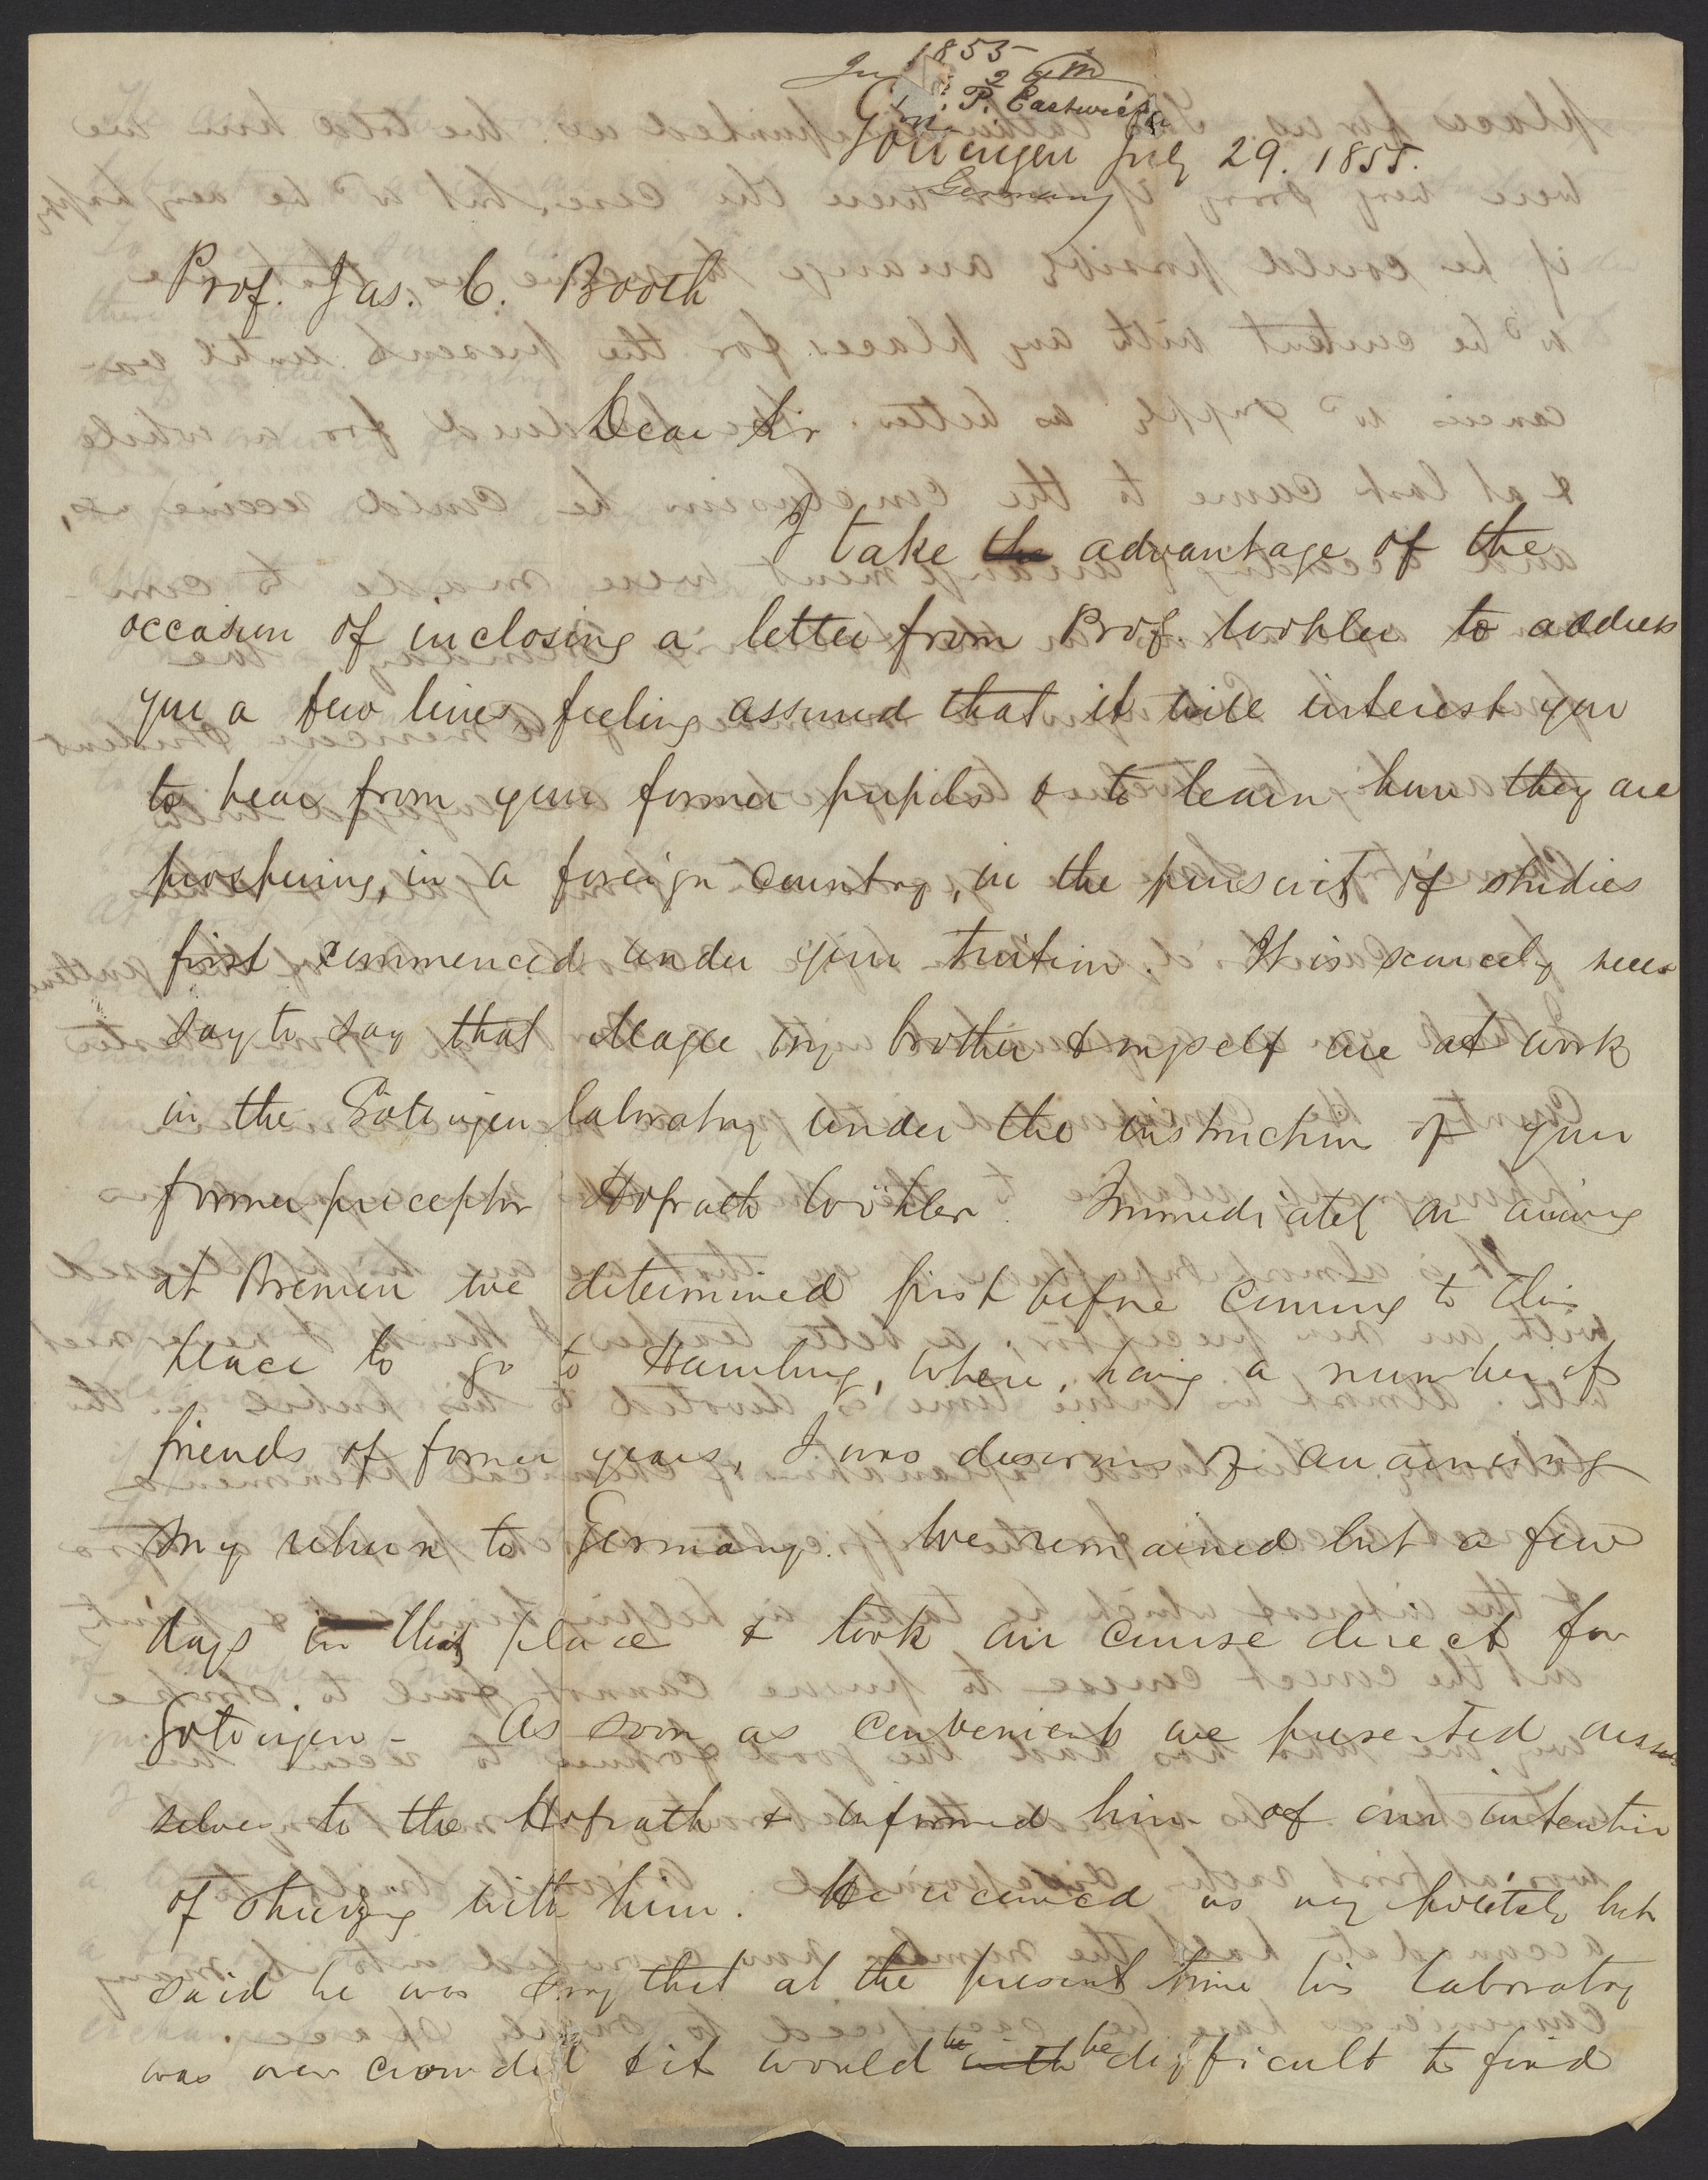 1855
P. Eastwick
Göttingen July 29. 1855.
Germany
Prof. Jas. C. Booth
Dear Sir
I take the advantage of the
occasion of inclosing a letter from Prof. Wohler to address
you a few lines, feeling assured that it will interest you
to hear from your former pupils & to learn how they are
prospering, in a foreign country, in the pursuit of studies
first commenced under your tuition. It is scarcely neces
sary to say that Magee my brother & myself are at work
in the Götingen laboratory under the instruction of your
former preceptor Hofrath Wöhler. Immediately on arriving
at Bremen we determined first before coming to this
place to go to Hamburg, where, having a number of
friends of former years, I was desirous of announcing
my return to Germany. We remained but a few
days in this place & took our course direct for
Gotingen - As soon as convenient we presented our
selves to the Hofrath & informed him of our intention
of studying with him. He received us very politely but
said he was sorry that at the present time his laboratory
was over crowded & it would be with be difficult to find